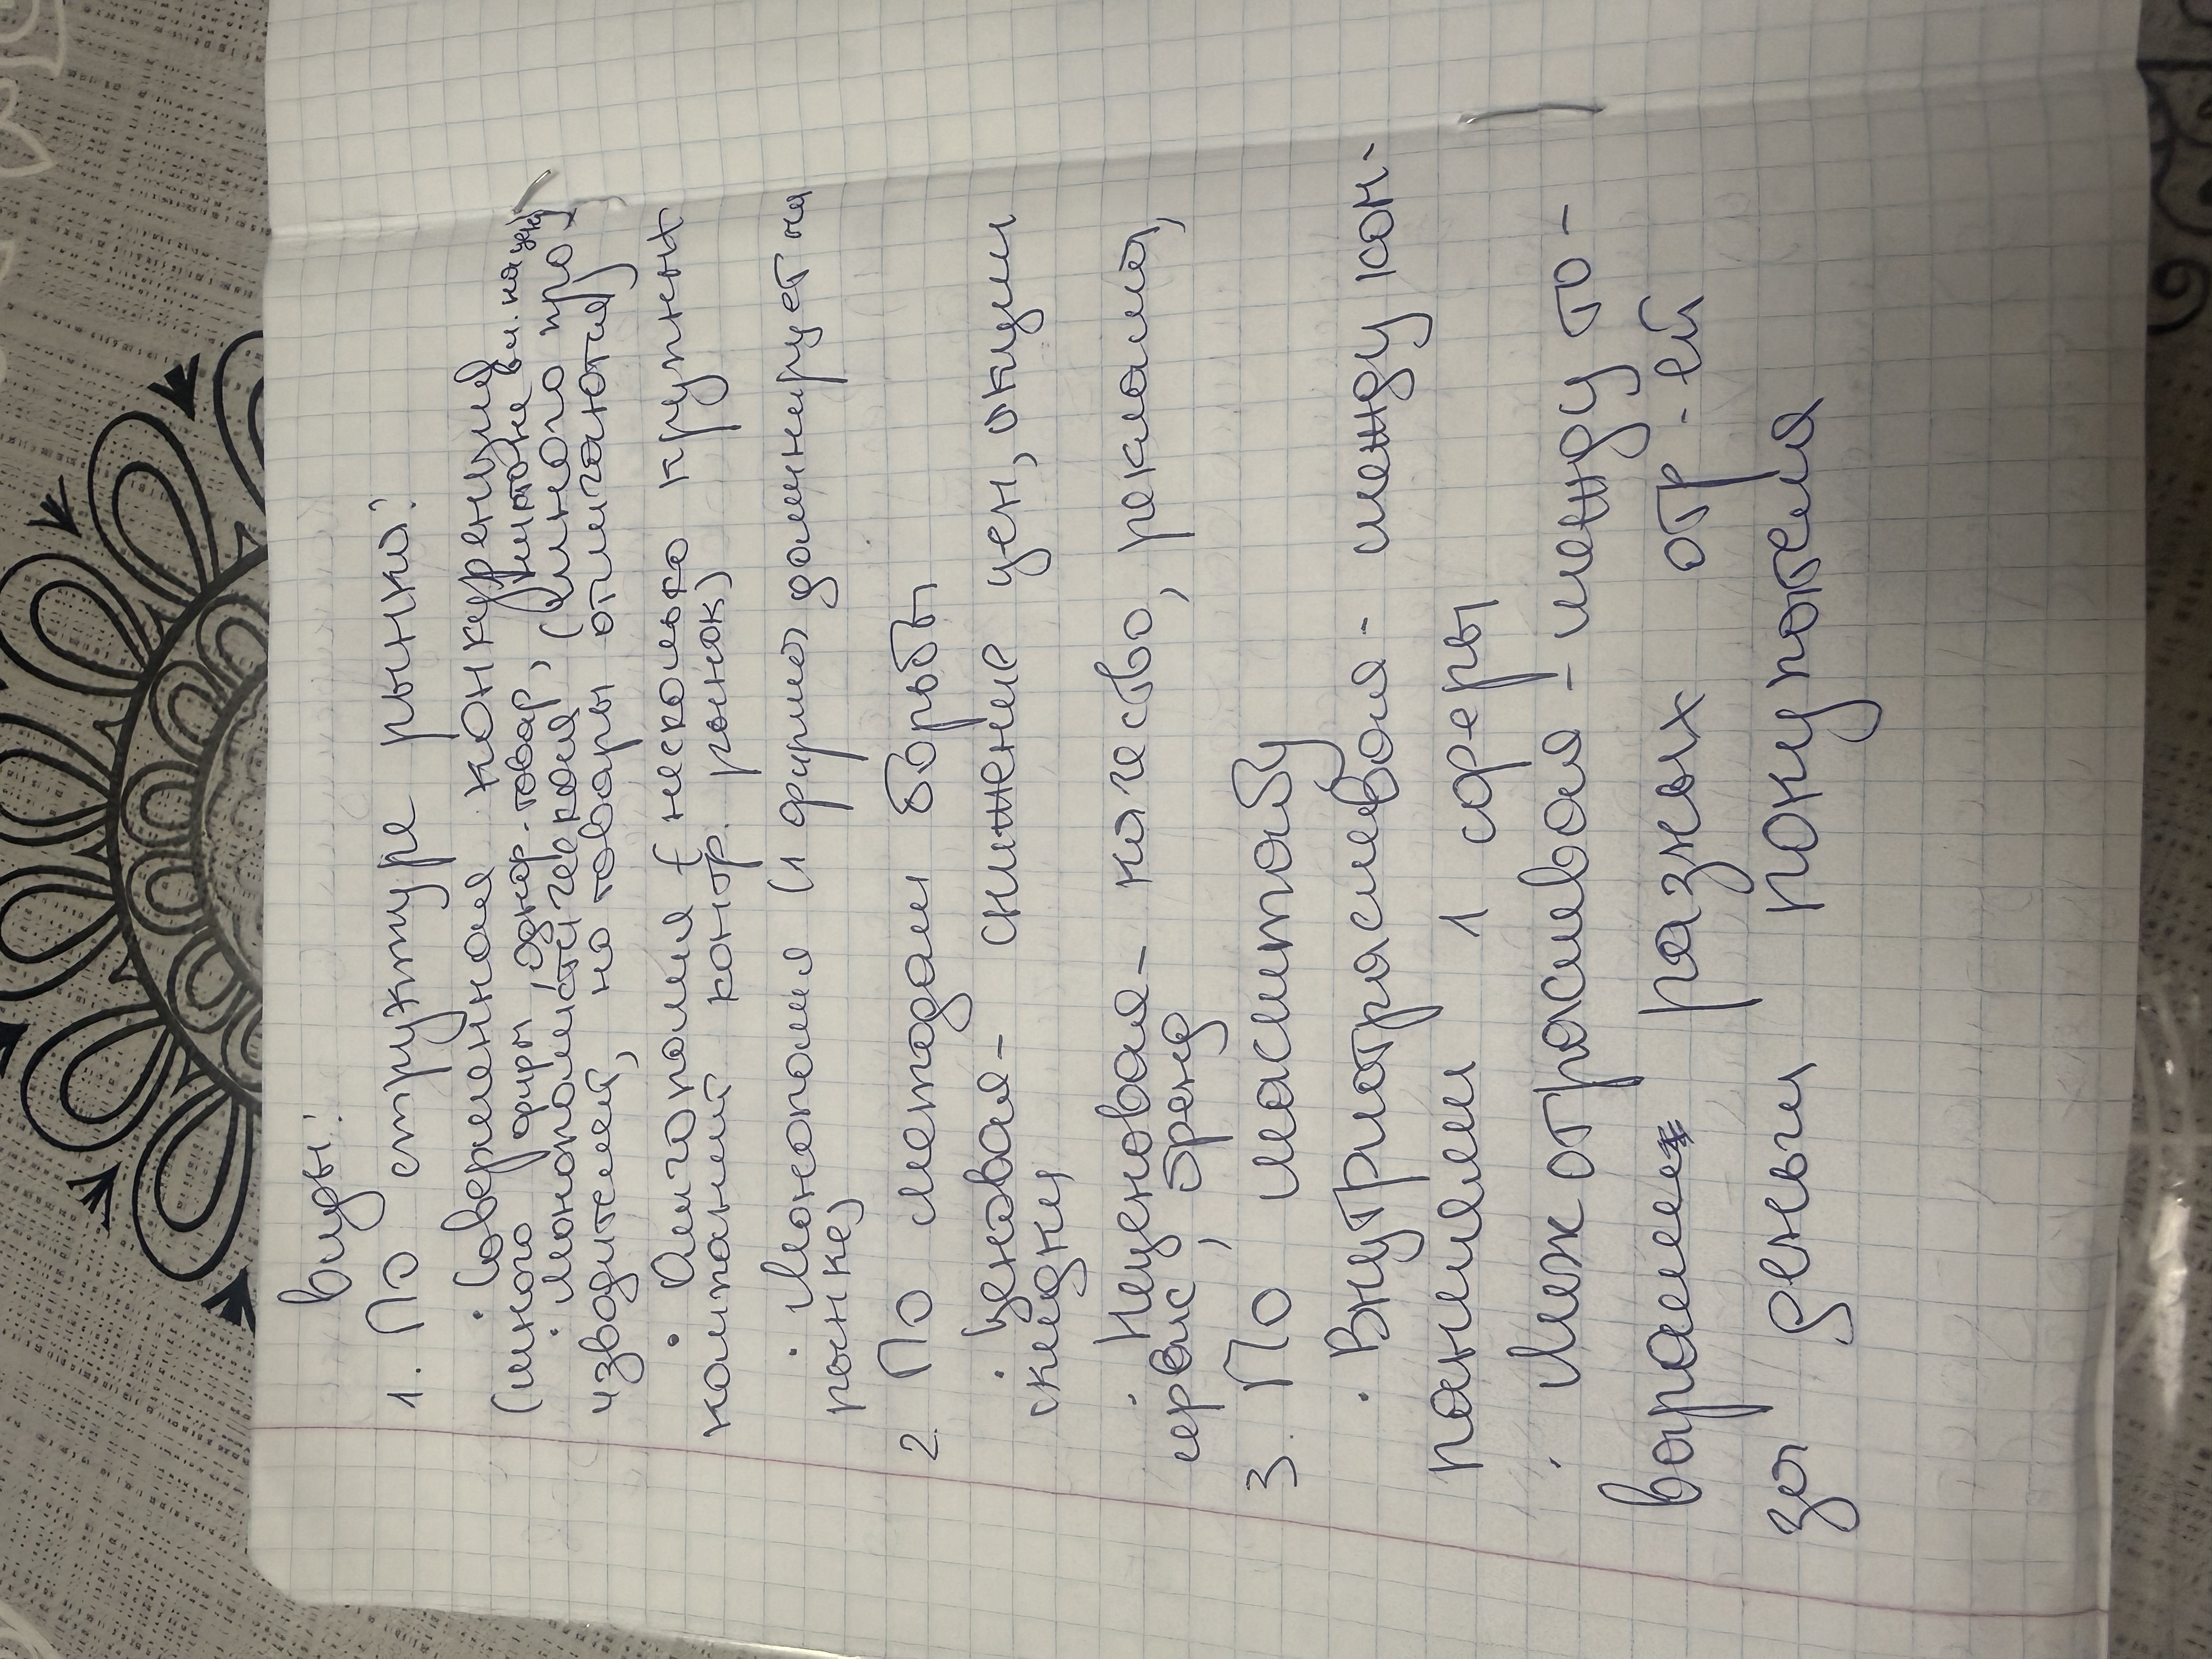 Виды:
1. По структуре рынка:
· Совершенная конкуренция
(много фирм, однор. товар, никто не вл. на цену)
· Монополистическая (много про-
изводителей, но товары отличаются)
· Олигополия (несколько крупных
компаний контр. рынок)
· Монополия (1 фирма доминирует на
рынке)
2. По методам борьбы
· Ценовая - снижение цен, акции
скидки
· Неценовая - качество, реклама,
сервис, бренд
3. По масштабу
· Внутриотраслевая - между ком-
паниями 1 сферы
· Межотраслевая - между то-
варами разных отр-ей
за деньги покупателя